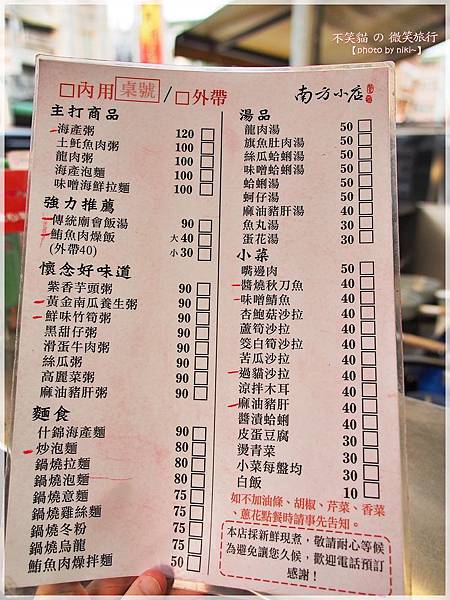 不笑貓 の 微笑旅行
【photo by niki~】
□內用 桌號 / □外帶
南方小店
主打商品
海產粥 120
土魠魚肉粥 100
龍肉粥 100
海產泡麵 100
味噌海鮮拉麵 100
強力推薦
傳統廟會飯湯 90
鮪魚肉燥飯 大40
(外帶40) 小30
懷念好味道
紫香芋頭粥 90
黃金南瓜養生粥 90
鮮味竹筍粥 90
黑甜仔粥 90
滑蛋牛肉粥 90
絲瓜粥 90
高麗菜粥 90
麻油豬肝粥 90
麵食
什錦海產麵 90
炒泡麵 80
鍋燒拉麵 80
鍋燒泡麵 80
鍋燒意麵 75
鍋燒雞絲麵 75
鍋燒冬粉 75
鍋燒烏龍 75
鮪魚肉燥拌麵 50
湯品
龍肉湯 50
旗魚肚肉湯 50
絲瓜蛤蜊湯 50
味噌蛤蜊湯 50
蛤蜊湯 50
蚵仔湯 50
麻油豬肝湯 50
魚丸湯 30
蛋花湯 30
小菜
嘴邊肉 50
醬燒秋刀魚 40
味噌鯖魚 40
杏鮑菇沙拉 40
蘆筍沙拉 40
筊白筍沙拉 40
苦瓜沙拉 40
過貓沙拉 40
涼拌木耳 40
麻油豬肝 40
醬漬蛤蜊 40
皮蛋豆腐 30
燙青菜 30
小菜每盤均 30
白飯 10
如不加油條、胡椒、芹菜、香菜
、蔥花點餐時請事先告知。
本店採新鮮現煮，敬請耐心等候
為避免讓您久候，歡迎電話預訂
感謝！